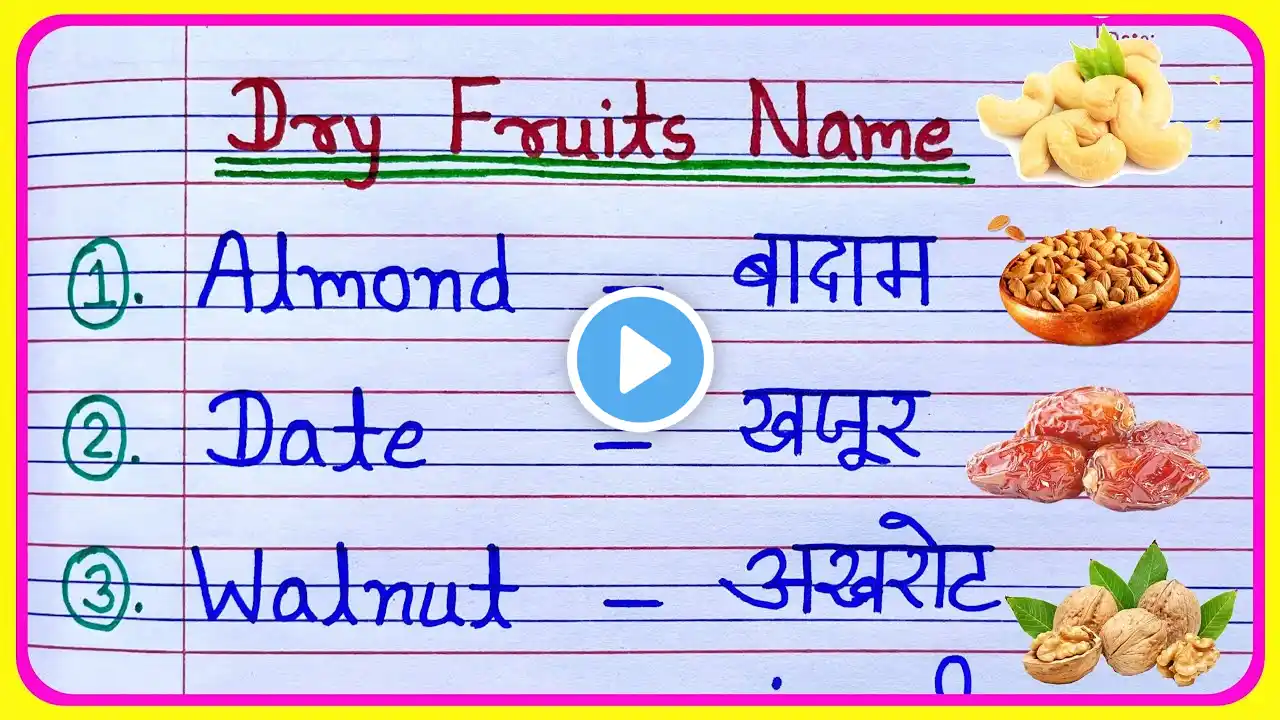 Dry Fruits Name
1. Almond – बादाम
2. Date – खजूर
3. Walnut – अखरोट